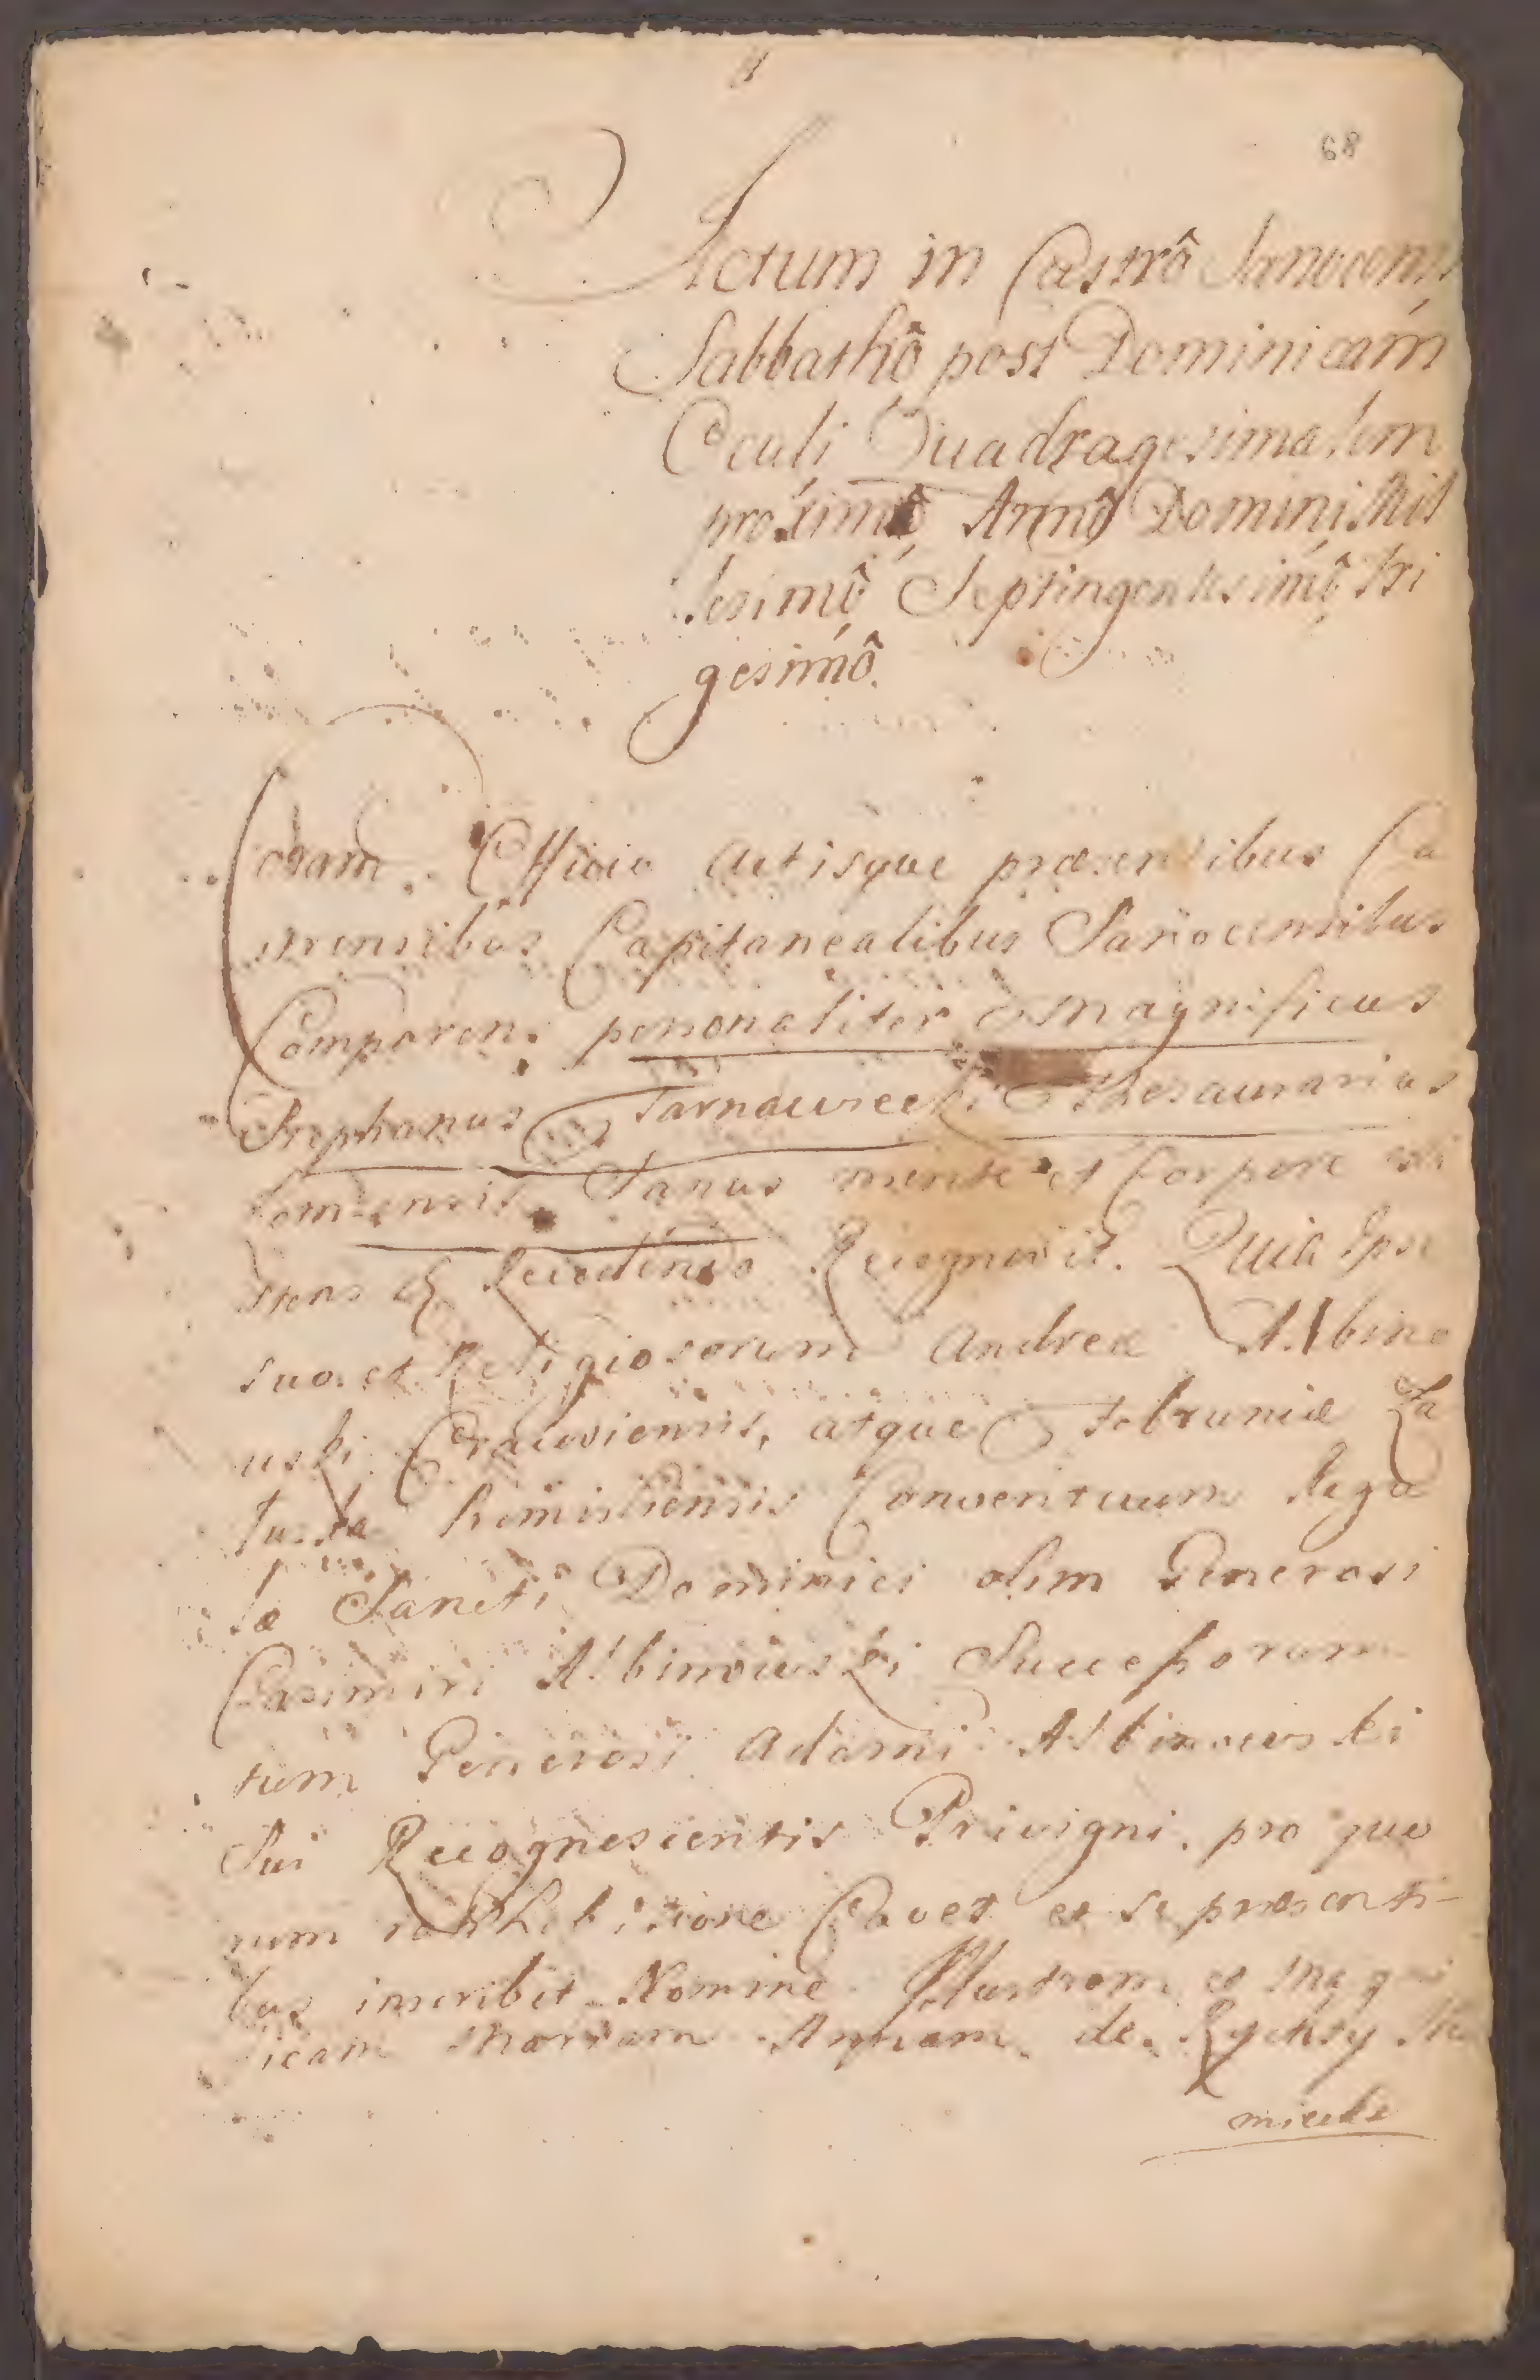 68
Actum in Castrô Sanocensi
Sabbathô post Dominicam
Oculi Quadragesimalem
proximô Annô Domini Mil
lesimô Septingentesimô tri
gesimô.
Coram Officio Actisque præsentibus Ca
strensibus Capitanealibus Sanocensibus
Comparens personaliter Magnificus
Stephanus Tarnawiecki Thesaurarius
Sanus mente et Corpore exi
stens Recognovit. Quia Ipse
suo et Religiosorum Andreæ Albino
uski Cracoviensis, atque
Conventuum Regu
læ Sancti Dominici olim Generosi
Casimiri Albinowski Successorum
tum Generosi Adami Albinowski
Sui Recognoscentis Privigni. pro quo
rum rathihibitione Cavet et se præsenti-
bus inscribit Nomine Illustrem et Mag
ficam Mariam Annam de Rychcy
miecke